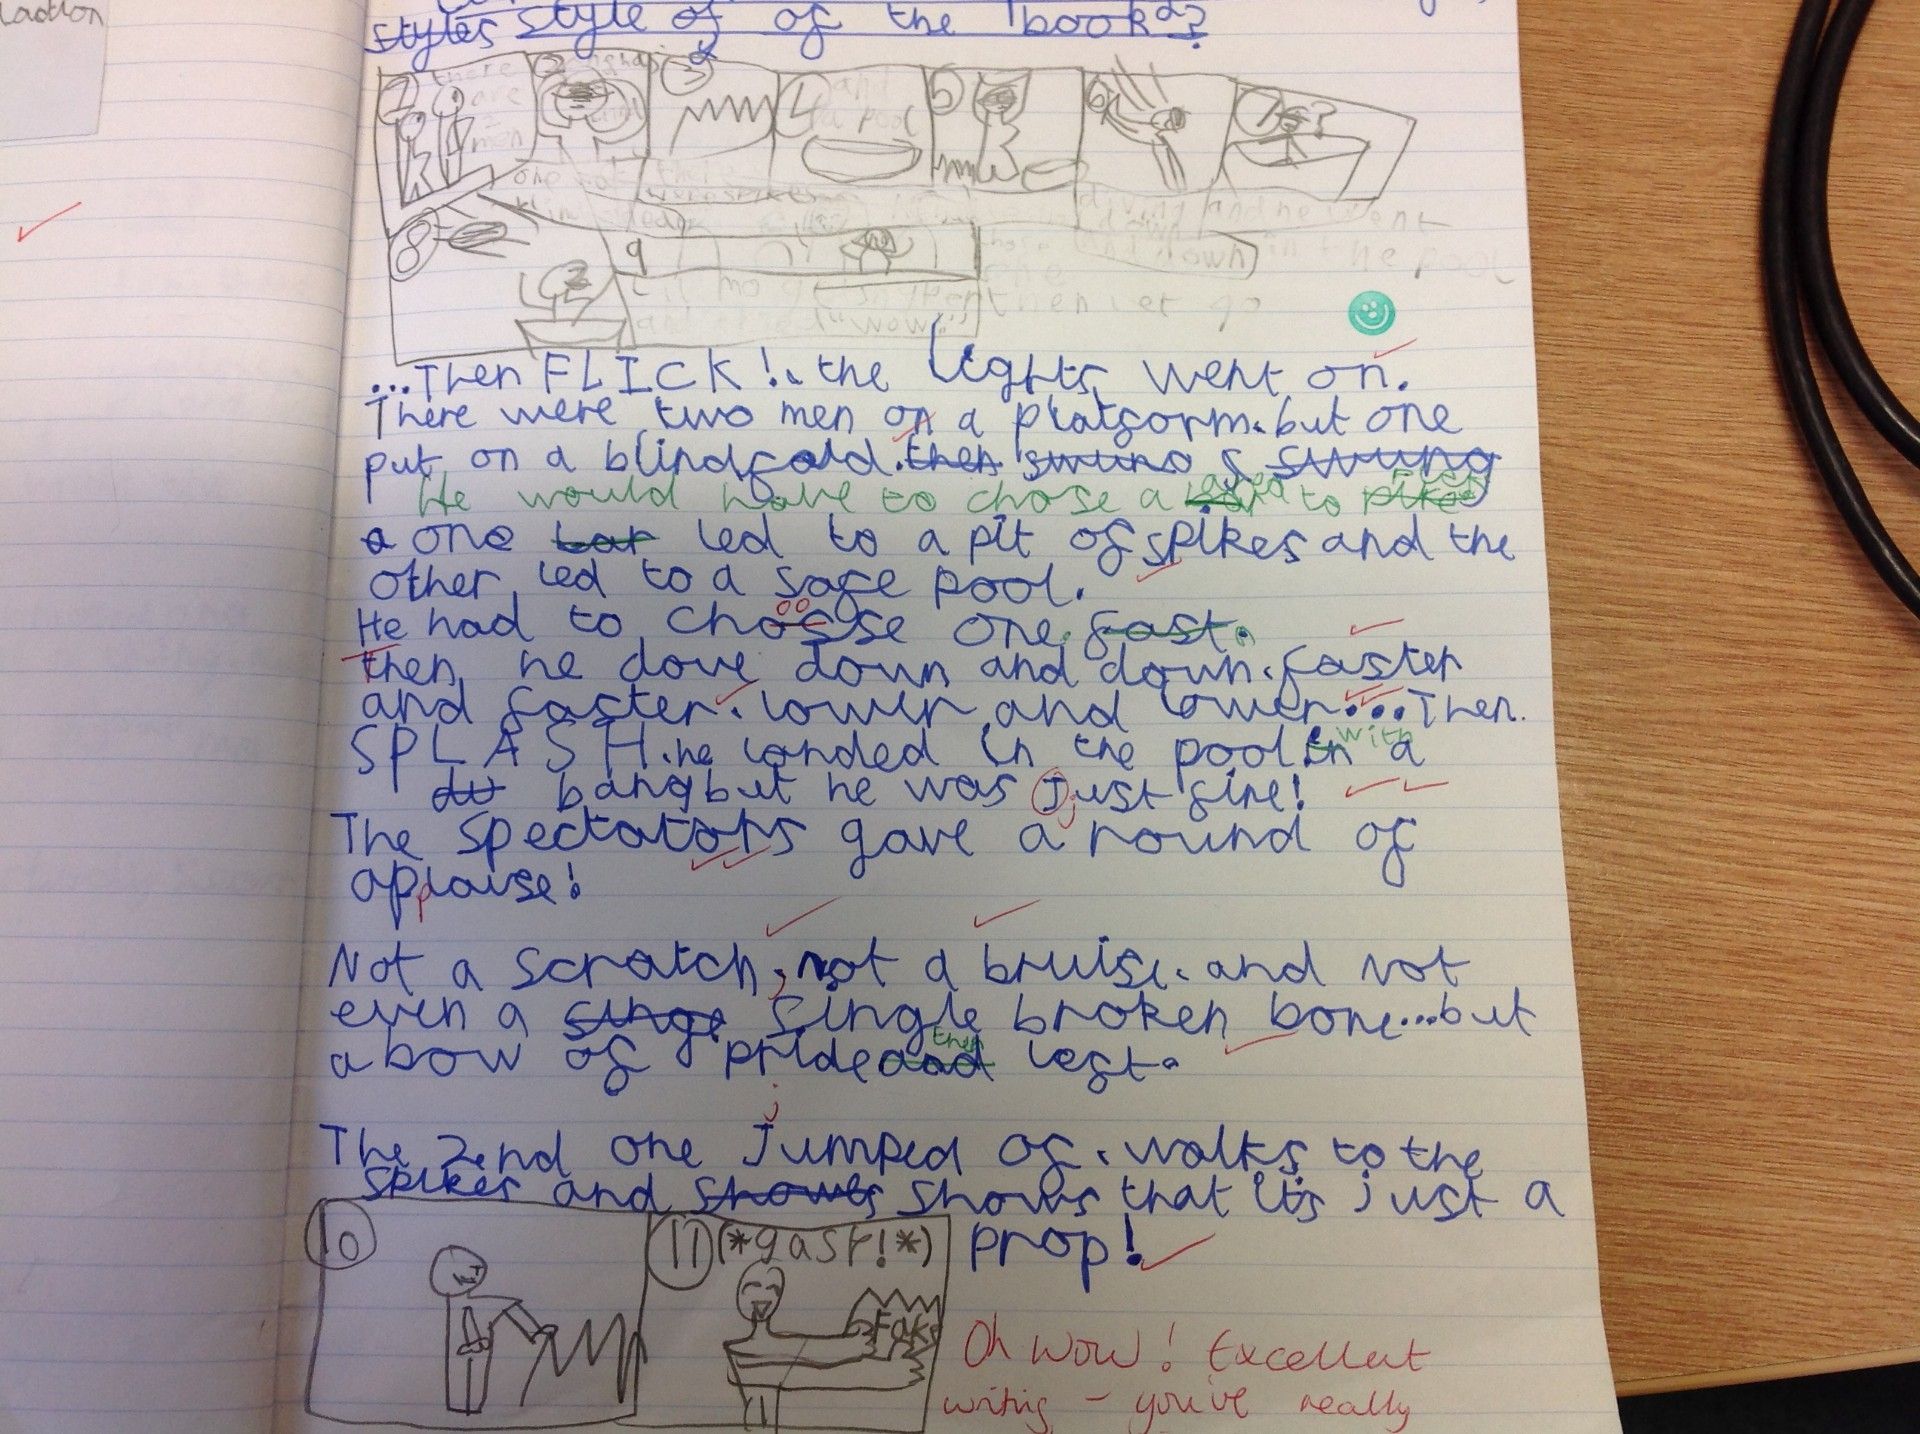 styles style of of the book?
1
there are 2 men
2
and
3
4
and a pool
5
6
7
?
one
there were spikes
diving and he went
down and down in the pool
8
9
then let go
and "wow"
...Then FLICK! the lights went on.
There were two men on a platform. but one
put on a blindfold. then swung s swung
He would have to chose a bar area to pikes
a one bar led to a pit of spikes and the
other led to a safe pool.
He had to choose one fast.
then he dove down and down. faster
and faster. lower and lower... Then
SPLASH. he landed in the pool in with a
du bang but he was Just fine!
The spectators gave a round of
applause!
Not a scratch, not a bruise. and not
even a singe single broken bone...but
a bow of pride and then left.
The 2nd one Jumped of. walks to the
spikes and shows shows that it's just a
prop!
10
11 (*gasp!*)
Fake
Oh wow! Excellent
writing - you've really